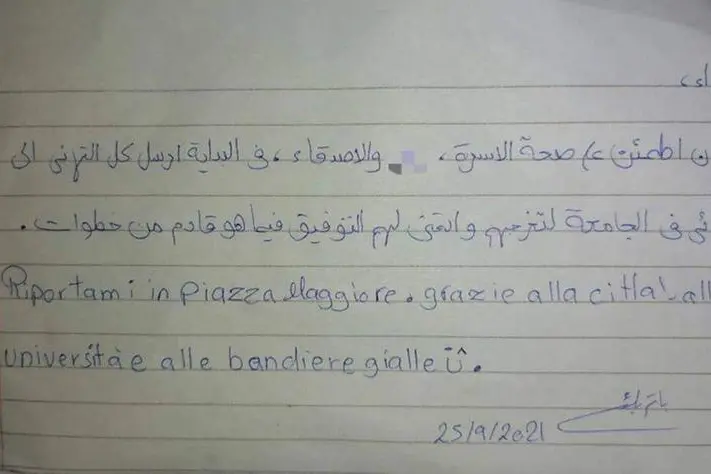 ن اطمئن على صحة الاسرة، والاصدقاء، في البداية ارسل كل التهني الى
ئي في الجامعة لتخرجهم واتمنى لهم التوفيق فيما هو قادم من خطوات.
Riportami in Piazza Maggiore. grazie alla citta'. all
università e alle bandiere gialle Ü.
25/9/2021